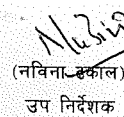 (नविना ढकाल)
उप निर्देशक